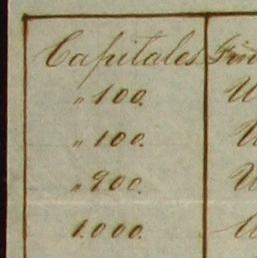 Capitales
" 100.
" 100.
" 900.
1.000.